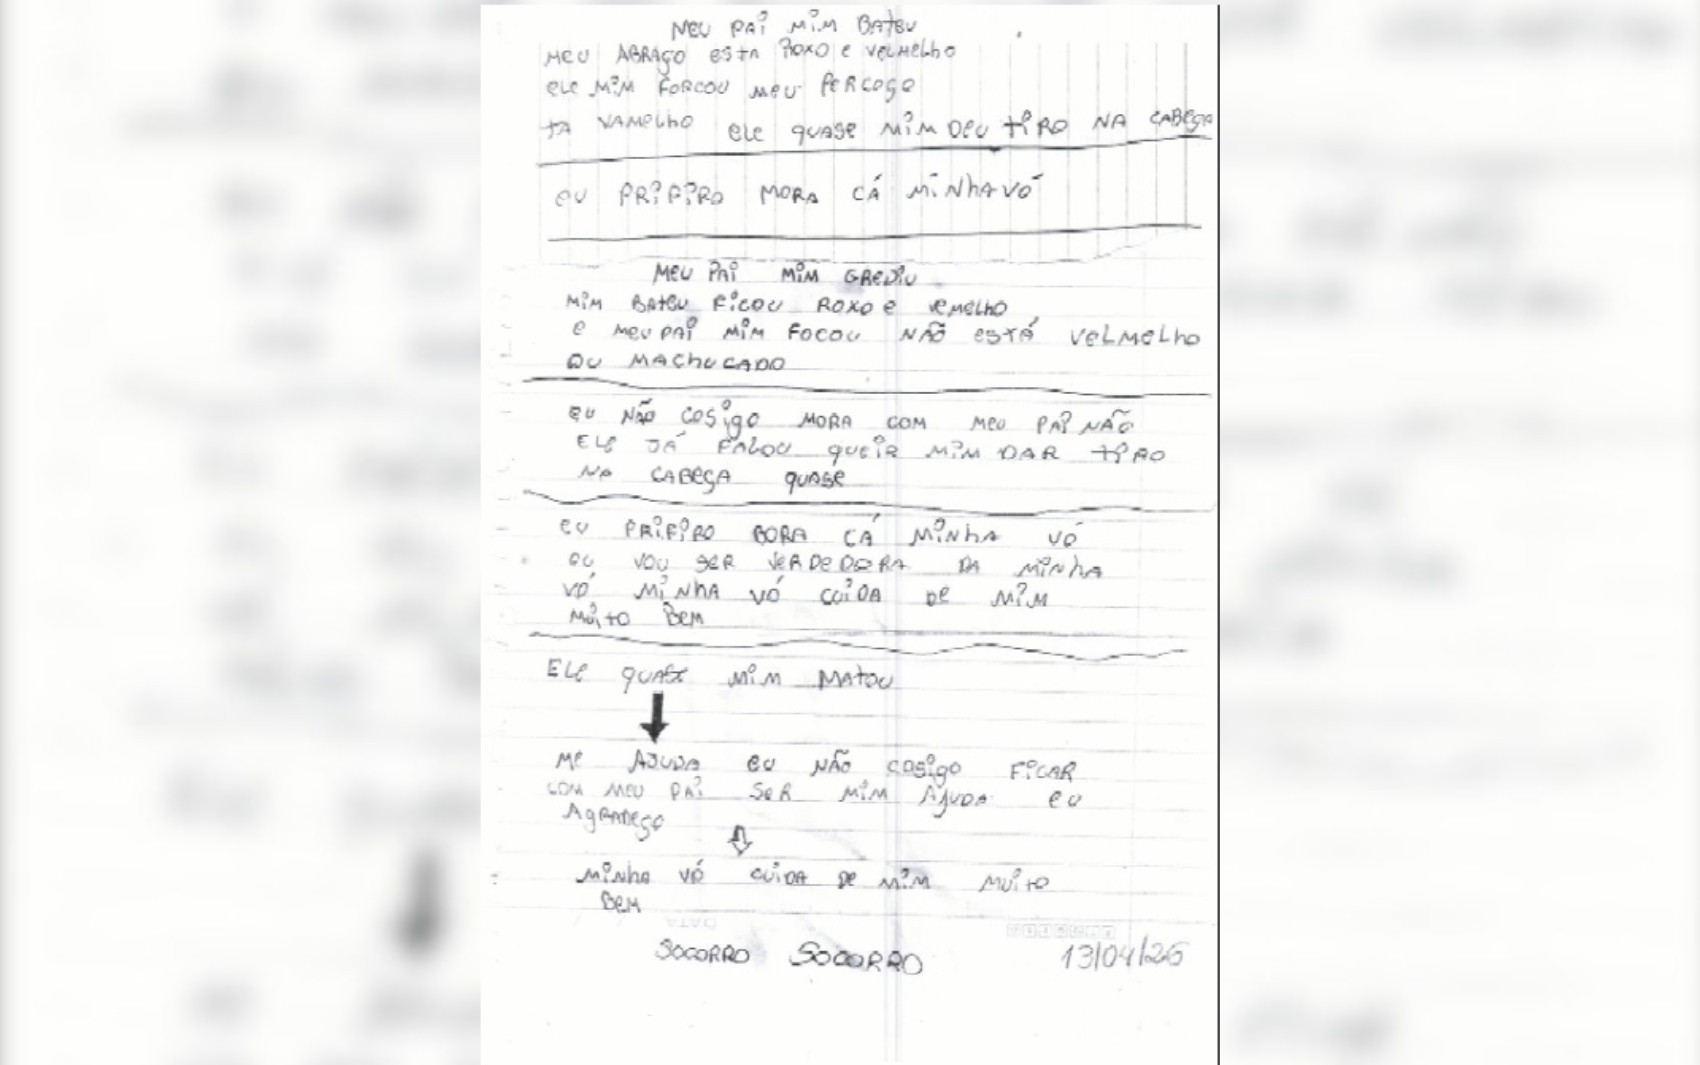 MEU PAI MIM BATEU
MEU ABRAÇO ESTA ROXO E VELMELHO
ELE MIM FORCOU MEU PERCOÇO
TA VAMELHO ELE QUASE MIM DEU TIRO NA CABEÇA
EU PRIFIRO MORA CÁ MINHA VÓ
MEU PAI MIM GREDIU
MIM BATEU FICOU ROXO E VEMELHO
E MEU PAI MIM FOCOU NÃO ESTÁ VELMELHO
OU MACHUCADO
EU NÃO COSIGO MORA COM MEU PAI NÃO
ELE JÁ FALOU QUEIR MIM DAR TIRO
NA CABEÇA QUASE
EU PRIFIRO BORA CÁ MINHA VÓ
EU VOU SER VERDEDERA DA MINHA
VÓ MINHA VÓ CUIDA DE MIM
MUITO BEM
ELE QUASE MIM MATOU
ME AJUDA EU NÃO COSIGO FICAR
COM MEU PAI SER MIM AJUDA EU
AGRADEÇO
MINHA VÓ CUIDA DE MIM MUITO
BEM
SOCORRO SOCORRO 13/04/26